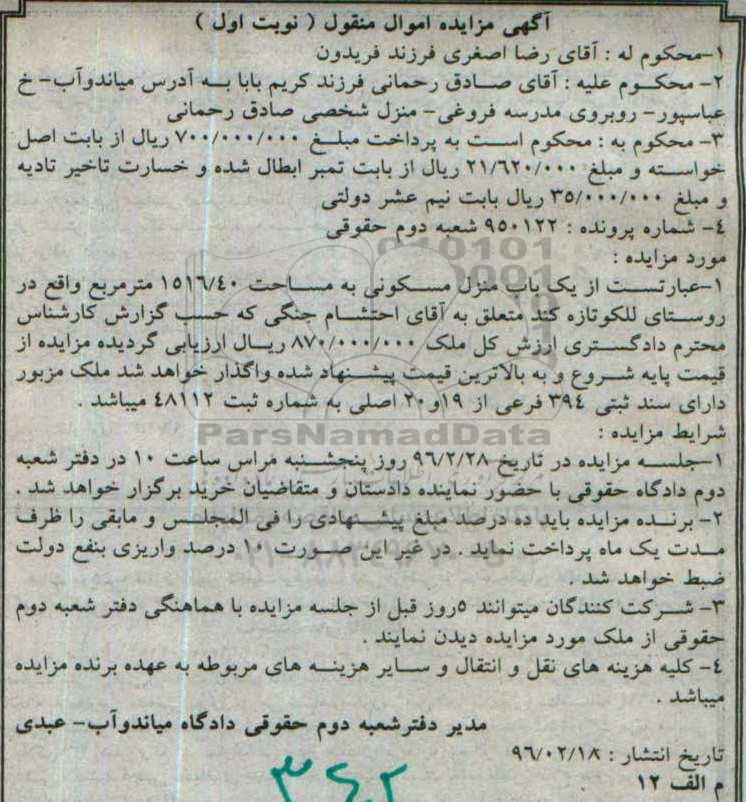 آگهی مزایده اموال منقول ( نوبت اول )
۱-محکوم له : آقای رضا اصغری فرزند فریدون
۲- محکوم علیه : آقای صادق رحمانی فرزند کریم بابا به آدرس میاندوآب- خ
عباسپور- روبروی مدرسه فروغی- منزل شخصی صادق رحمانی
۳- محکوم به : محکوم است به پرداخت مبلغ ۷۰۰/۰۰۰/۰۰۰ ریال از بابت اصل
خواسته و مبلغ ۲۱/۶۲۰/۰۰۰ ریال از بابت تمبر ابطال شده و خسارت تاخیر تادیه
و مبلغ ۳۵/۰۰۰/۰۰۰ ریال بابت نیم عشر دولتی
٤- شماره پرونده : ۹۵۰۱۲۲ شعبه دوم حقوقی
مورد مزایده :
۱-عبارتست از یک باب منزل مسکونی به مساحت ۱۵۱٦/٤۰ مترمربع واقع در
روستای للکوتازه کند متعلق به آقای احتشام جنگی که حسب گزارش کارشناس
محترم دادگستری ارزش کل ملک ۸۷۰/۰۰۰/۰۰۰ ریال ارزیابی گردیده مزایده از
قیمت پایه شروع و به بالاترین قیمت پیشنهاد شده واگذار خواهد شد ملک مزبور
دارای سند ثبتی ۳۹٤ فرعی از ۱۹و۲۰ اصلی به شماره ثبت ٤۸۱۱۲ میباشد .
ParsNamadData
شرایط مزایده :
۱-جلسه مزایده در تاریخ ۹٦/۲/۲۸ روز پنجشنبه مراس ساعت ۱۰ در دفتر شعبه
دوم دادگاه حقوقی با حضور نماینده دادستان و متقاضیان خرید برگزار خواهد شد .
۲- برنده مزایده باید ده درصد مبلغ پیشنهادی را فی المجلس و مابقی را ظرف
مدت یک ماه پرداخت نماید . در غیر این صورت ۱۰ درصد واریزی بنفع دولت
ضبط خواهد شد .
۳- شرکت کنندگان میتوانند ۵روز قبل از جلسه مزایده با هماهنگی دفتر شعبه دوم
حقوقی از ملک مورد مزایده دیدن نمایند .
٤- کلیه هزینه های نقل و انتقال و سایر هزینه های مربوطه به عهده برنده مزایده
میباشد .
مدیر دفترشعبه دوم حقوقی دادگاه میاندوآب- عبدی
تاریخ انتشار : ۹٦/۰۲/۱۸
م الف ۱۲